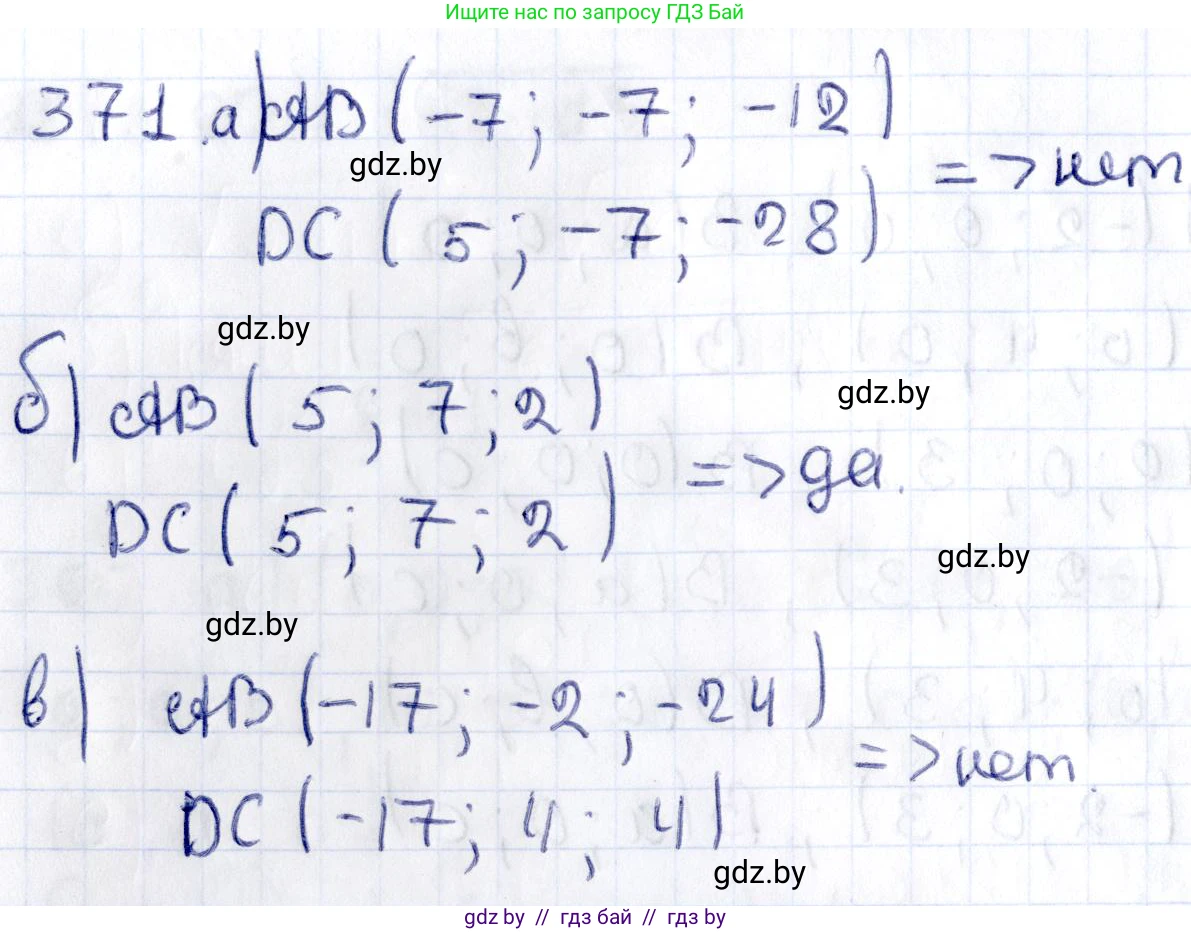 Ищите нас по запросу ГДЗ Бай
371. а) AB (-7; -7; -12)
=> нет
gdz.by
DC (5; -7; -28)
gdz.by
б) AB (5; 7; 2)
gdz.by
=> да.
DC (5; 7; 2)
gdz.by
gdz.by
в) AB (-17; -2; -24)
=> нет.
DC (-17; 4; 4)
gdz.by
gdz.by // гдз бай // гдз by